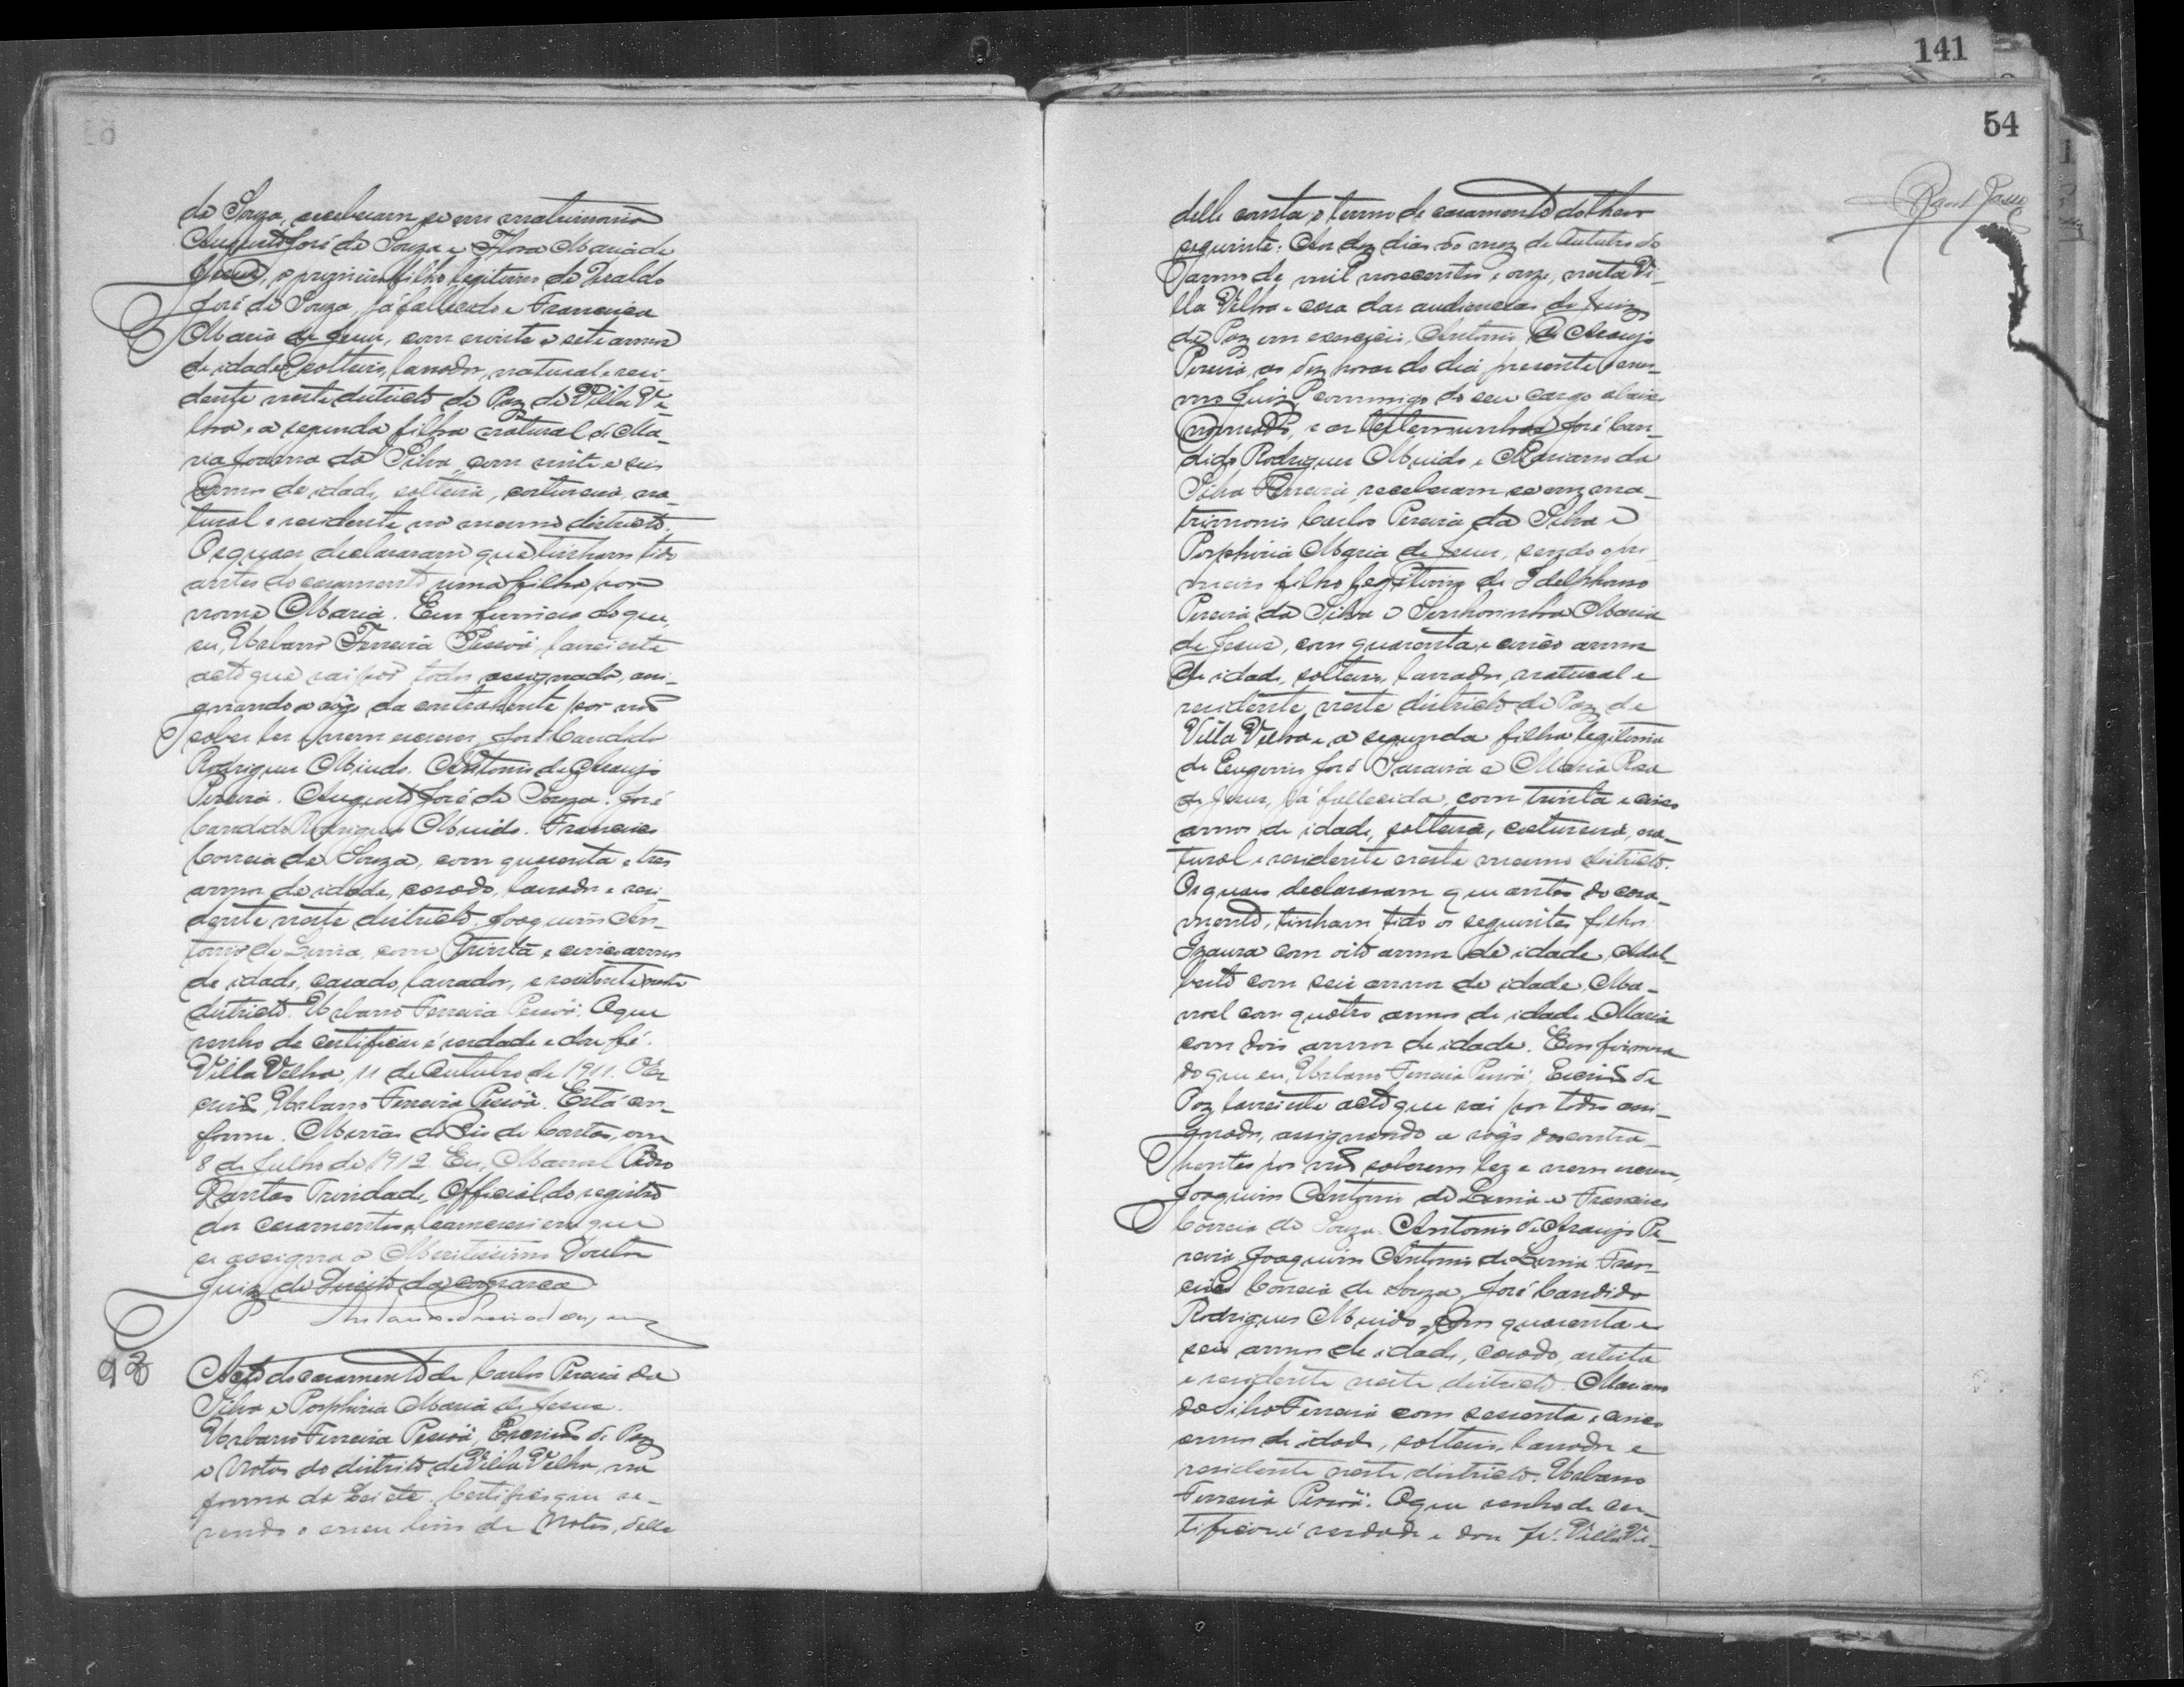 de Souza, receberam se em matrimonio
Augusto José de Souza e Flora Maria de
Jesus, o primeiro filho legitimo de
José de Souza, já fallecido e Francisca
Maria de Jesus, com vinte e sete annos
de idade solteiro, lavrador, natural e resi-
dente neste districto de Paz de Villa Ve-
lha e a segunda filha natural de Ma-
ria Joanna da Silva, com vinte e seis
annos de idade, solteira, costureira, na-
tural e residente no mesmo districto.
Os quaes declararam que tinham tido
antes do casamento uma filha por
nome Maria. Em firmeza do que,
eu, Urbano Ferreira Pessôa, lavrei este
acto que vai por todos assignado, assi-
gnando a rogo da contrahente por não
saber ler e nem escrever, José Candido
Rodrigues Muido. Antonio de Araujo
Pereira. Augusto José de Souza. José
Candido Rodrigues Muido. Francisco
Correia de Souza, com quarenta e tres
annos de idade, casado, lavrador e resi-
dente neste districto. Joaquim An-
tonio de Lima, com trinta e cinco annos
de idade, casado, lavrador, e residente neste
districto. Urbano Ferreira Pessôa. O que
venho de certificar é verdade e dou fé.
Villa Velha, 11 de Outubro de 1911. O Es-
crivão Urbano Ferreira Pessôa. Está con-
forme. Minas do Rio de Contas, em
8 de Julho de 1912. Eu, Manoel Pedro
Dantas Trindade, Official do registro
dos casamentos, escrevi em que
se assigna o Meritissimo Doutor
Juiz de Direito da comarca
93
Acto do casamento de Carlos Pereira da
Silva e Porphiria Maria de Jesus.
Urbano Ferreira Pessôa, Escrivão de Paz
e Notas do districto de Villa Velha, na
forma da Lei etc. Certifico que re-
vendo o meu livro de Notas, delle
141
54
delle consta o termo de casamento do theor
seguinte: Aos dez dias do mez de Outubro do
anno de mil novecentos e onze, nesta Vi-
lla Velha e casa das audiencias do Juizo
de Paz em exercicio, Antonio de Araujo
Pereira, as dez horas do dia, presente o mes-
mo Juiz, commigo do seu cargo abaixo
nomeado, e as testemunhas José Can-
dido Rodrigues Muido e Mariano da
Silva Ferreira, receberam se em ma-
trimonio Carlos Pereira da Silva e
Porphiria Maria de Jesus, sendo o pri-
meiro filho legitimo de Idelphonso
Pereira da Silva e Senhorinha Maria
de Jesus, com quarenta e cinco annos
de idade, solteiro, lavrador, natural e
residente neste districto de Paz de
Villa Velha e a segunda filha legitima
de Eugenio José Saraiva e Maria Rosa
de Jesus, já fallecida, com trinta e cinco
annos de idade, solteira, costureira, na-
tural e residente neste mesmo districto.
Os quaes declararam que antes do casa-
mento, tinham tido os seguintes filhos
Izaura com oito annos de idade, Adal-
berto com seis annos de idade, Ma-
noel com quatro annos de idade e Maria
com dois annos de idade. Em firmeza
do que eu, Urbano Ferreira Pessôa, Escrivão de
Paz, lavrei este acto que vai por todos assi-
gnado, assignando a rogo dos contra-
hentes por não saberem ler e nem escrever,
Joaquim Antonio de Lima e Francisco
Correia de Souza. Antonio de Araujo Pe-
reira, Joaquim Antonio de Lima. Fran-
cisco Correia de Souza, José Candido
Rodrigues Muido, com quarenta e
seis annos de idade, casado, artista
e residente neste districto. Mariano
da Silva Ferreira com sessenta e cinco
annos de idade, solteiro, lavrador e
residente neste districto. Urbano
Ferreira Pessôa. O que venho de cer-
tificar é verdade e dou fé. Villa Ve-